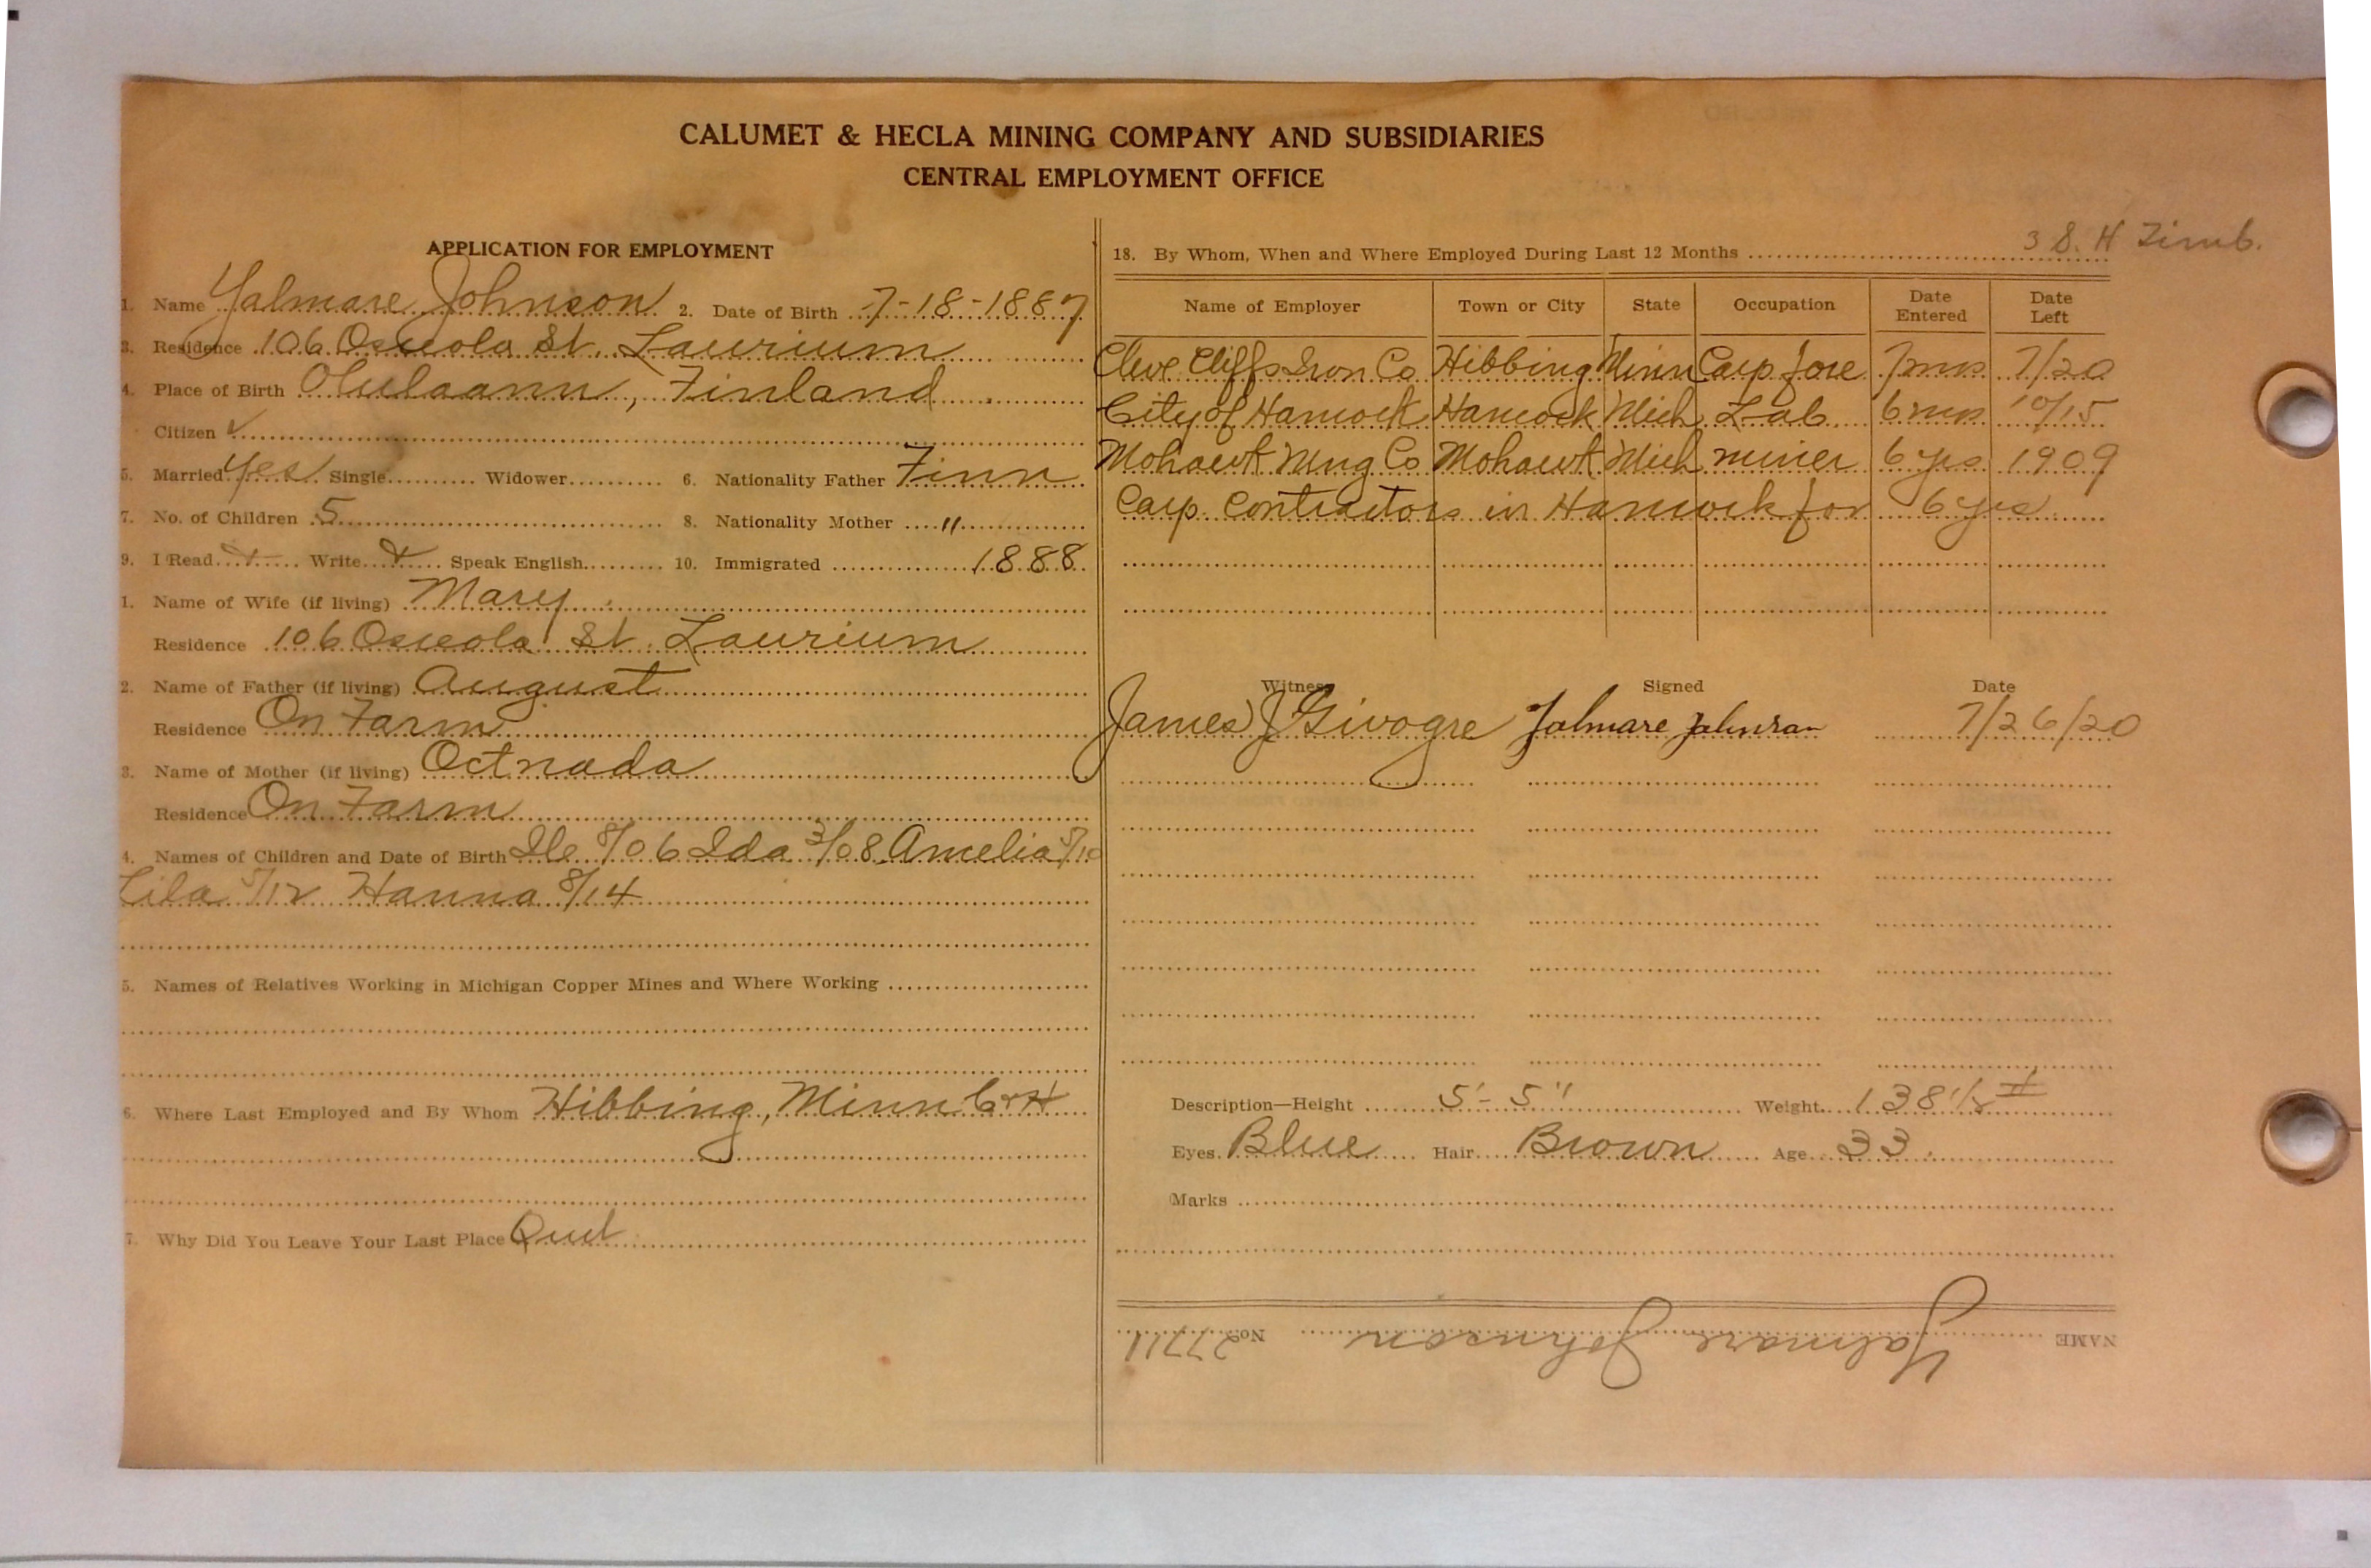 CALUMET & HECLA MINING COMPANY AND SUBSIDIARIES
CENTRAL EMPLOYMENT OFFICE
APPLICATION FOR EMPLOYMENT
1. Name Yalmare Johnson 2. Date of Birth 7-18-1887
3. Residence 106 Osceola St. Laurium
4. Place of Birth Olulaann, Finland
Citizen ✓
5. Married Yes Single Widower 6. Nationality Father Finn
7. No. of Children 5 8. Nationality Mother "
9. I Read Write Speak English 10. Immigrated 1888
1. Name of Wife (if living) Mary
Residence 106 Osceola St. Laurium
2. Name of Father (if living) August
Residence On Farm
3. Name of Mother (if living) Octnada
Residence On Farm
4. Names of Children and Date of Birth 8/06 Ida 3/08 Amelia 5/10
Lila 5/12 Hanna 8/14
5. Names of Relatives Working in Michigan Copper Mines and Where Working
6. Where Last Employed and By Whom Hibbing, Minn
7. Why Did You Leave Your Last Place Quit
3 S. H Timb.
18. By Whom, When and Where Employed During Last 12 Months
Name of Employer Town or City State Occupation Date Entered Date Left
Cleve Cliffs Iron Co Hibbing Minn Carp fore 7/20
City of Hancock Hancock Mich Lab. 6 mn 10/15
Mohawk Mng Co Mohawk Mich miner 6 yrs 1909
Carp. Contractors in Hancock for 6 yrs
Witness Signed Date
James J Givogre Jalmare Johnson 7/26/20
Description—Height 5'-5" Weight 138 1/2 #
Eyes Blue Hair Brown Age 33
Marks
NAME Yalmare Johnson No. 27711